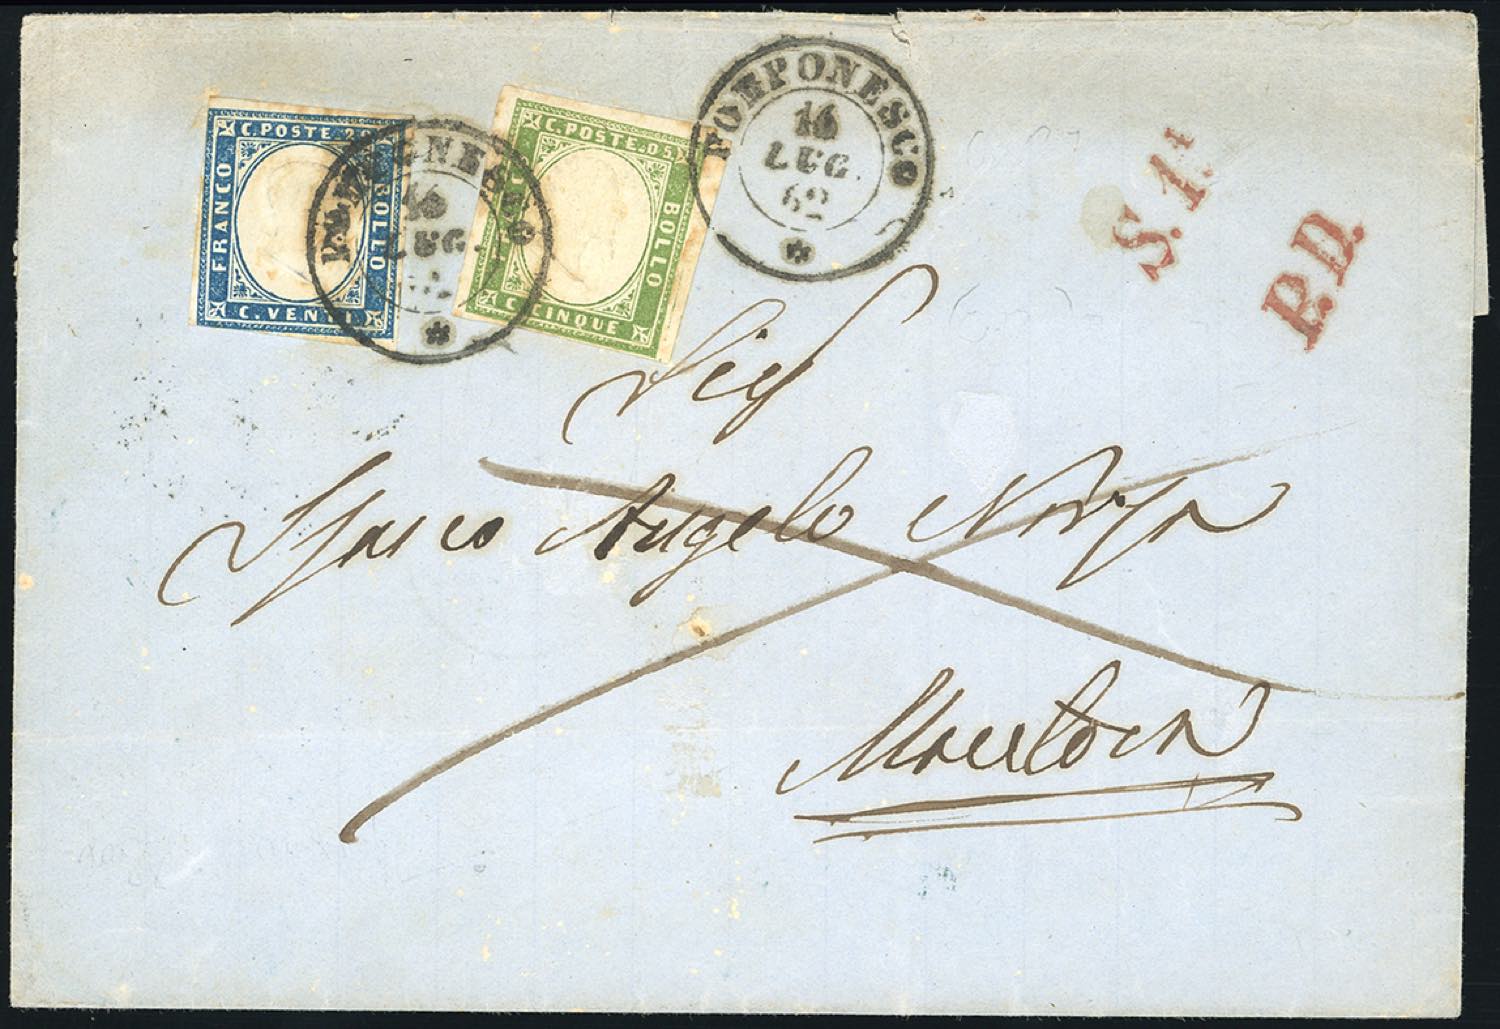 C. POSTE 20
FRANCO
BOLLO
C. VENTI
C. POSTE. 05.
BOLLO
C. CINQUE
POMPONESCO
16
LUG.
62
POMPONESCO
16
LUG.
S. 1ª
P.D.
Sig
Angelo Norsa
Mantova